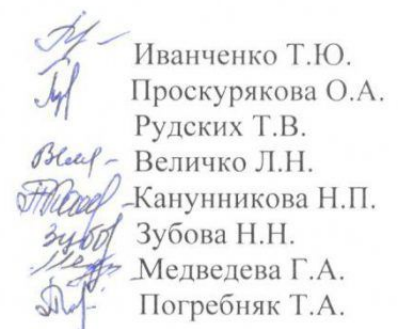 Иванченко Т.Ю.
Проскурякова О.А.
Рудских Т.В.
Величко Л.Н.
Канунникова Н.П.
Зубова Н.Н.
Медведева Г.А.
Погребняк Т.А.